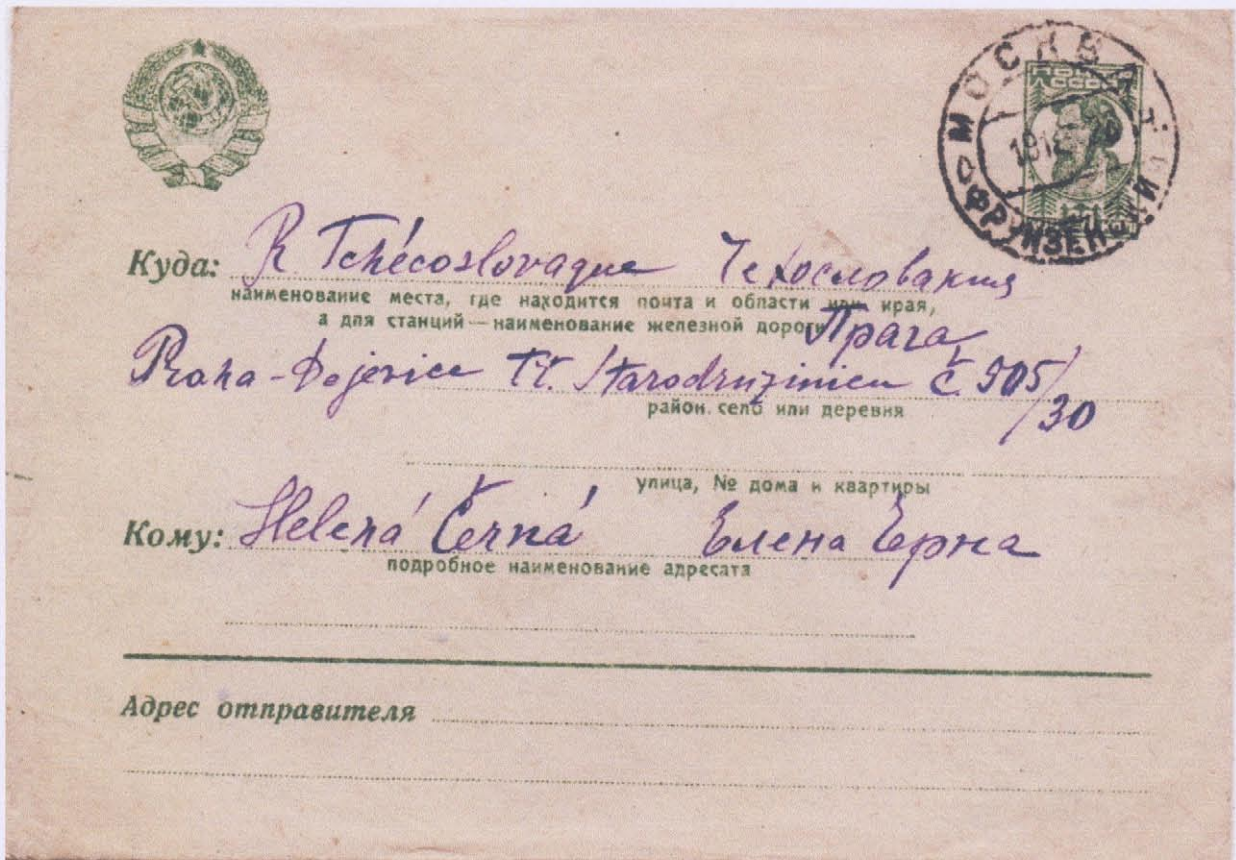 МОСКВА
ПОЧТА
СССР
ФРУНЗЕНСКИЙ
Куда: R Tchécoslovaque Чехословакия
наименование места, где находится почта и области или края,
а для станций — наименование железной дороги Прага
Praha-Dejvice Tř. Starodružiníků č 905/30
район. село или деревня
улица, № дома и квартиры
Кому: Helená Černá Елена Ерна
подробное наименование адресата
Адрес отправителя